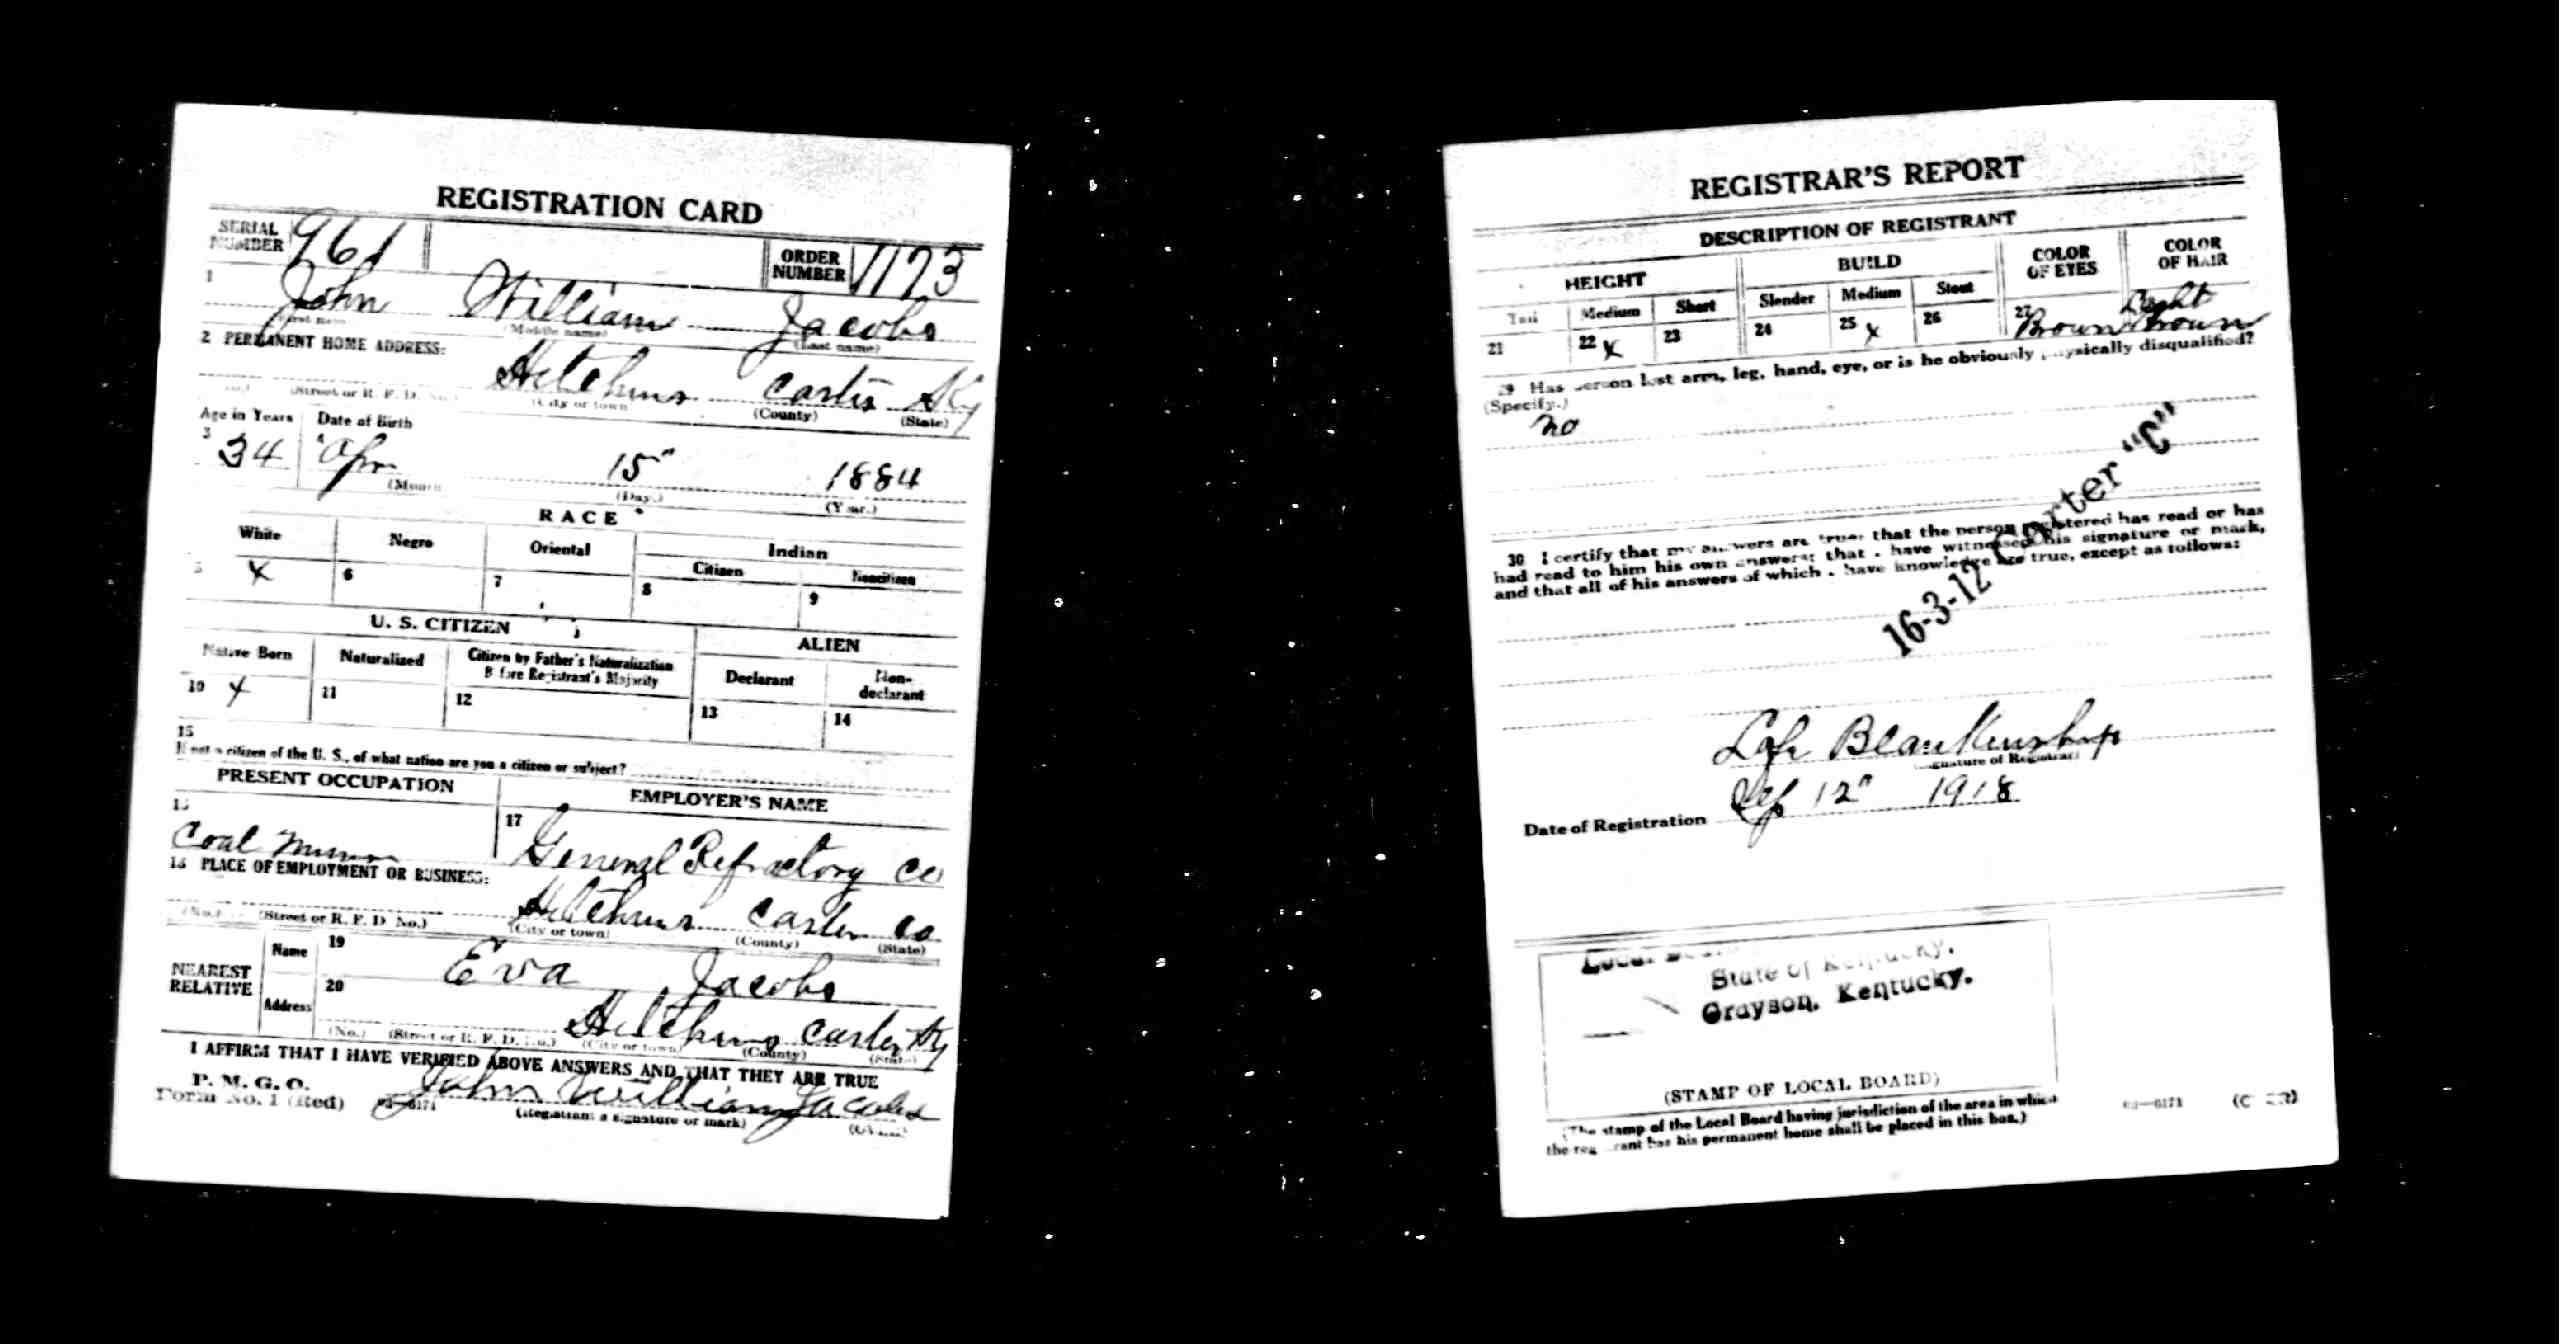 REGISTRATION CARD
SERIAL NUMBER 961 ORDER NUMBER 1173
1 John William Jacobs
(First name) (Middle name) (Last name)
2 PERMANENT HOME ADDRESS:
Hitchins Carter Ky
(Street or R. F. D. No.) (City or town) (County) (State)
Age in Years Date of Birth
3 34 4 Apr 15" 1884
(Month) (Day.) (Year.)
RACE
White Negro Oriental Indian
Citizen Noncitizen
5 X 6 7 8 9
U. S. CITIZEN ALIEN
Native Born Naturalized Citizen by Father's Naturalization Before Registrant's Majority Declarant Non-declarant
10 X 11 12 13 14
15
If not a citizen of the U. S., of what nation are you a citizen or subject?
PRESENT OCCUPATION EMPLOYER'S NAME
16 Coal Miner 17 General Refractory Co
18 PLACE OF EMPLOYMENT OR BUSINESS:
Hitchins Carter Co
(No.) (Street or R. F. D. No.) (City or town) (County) (State)
NEAREST RELATIVE Name 19 Eva Jacobs
Address 20 Hitchins Carter Ky
(No.) (Street or R. F. D. No.) (City or town) (County) (State)
I AFFIRM THAT I HAVE VERIFIED ABOVE ANSWERS AND THAT THEY ARE TRUE
P. M. G. O.
Form No. 1 (Red) John William Jacobs
(Registrant's signature or mark)
REGISTRAR'S REPORT
DESCRIPTION OF REGISTRANT
HEIGHT BUILD COLOR OF EYES COLOR OF HAIR
Tall Medium Short Slender Medium Stout
21 22 X 23 24 25 X 26 27 Brown Light Brown
29 Has person lost arm, leg, hand, eye, or is he obviously physically disqualified?
(Specify.)
no
30 I certify that my answers are true; that the person registered has read or has
had read to him his own answers; that I have witnessed his signature or mark,
and that all of his answers of which I have knowledge are true, except as follows:
16-3-12 Carter "C"
Lafe Blankenship
(Signature of Registrar)
Date of Registration Sep 12" 1918
Local
State of Kentucky.
Grayson, Kentucky.
(STAMP OF LOCAL BOARD)
(The stamp of the Local Board having jurisdiction of the area in which
the registrant has his permanent home shall be placed in this box.)